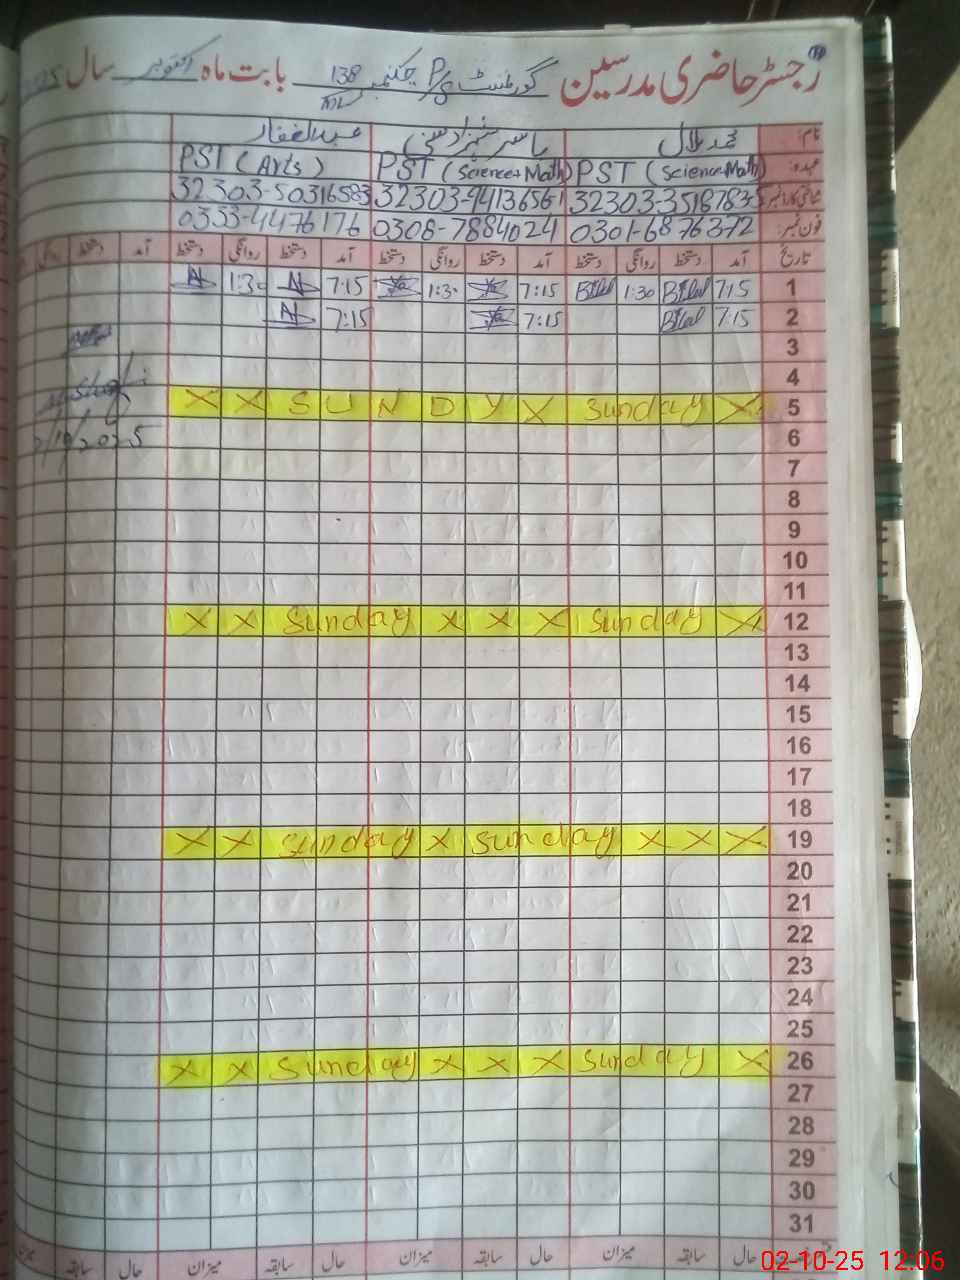 رجسٹر حاضری مدرسین گورنمنٹ P/S چکنمبر 138 بابت ماہ اکتوبر سال
نام: محمد بلال یاسر عبدالغفار
عہدہ: PST (Science+Math) PST (Science+Math) PST (Arts)
شناختی کارڈ نمبر 32303-3518783-5 32303-9413656-1 32303-50316583
فون نمبر: 0301-6876372 0308-7884024 0333-4476176
تاریخ آمد دستخط روانگی دستخط آمد دستخط روانگی دستخط آمد دستخط روانگی دستخط آمد دستخط
1 7:15 Bilal 1:30 Bilal 7:15 1:30 7:15 N 1:30 N
2 7:15 Bilal 7:15 7:15 N
3
4
X X S U N D Y X Sunday X 5
6
7
8
9
10
11
X X Sunday X X X Sunday X 12
13
14
15
16
17
18
X X Sunday X Sunday X X X 19
20
21
22
23
24
25
X X Sunday X X X Sunday X 26
27
28
29
30
31
حال سابقہ میزان حال سابقہ میزان حال سابقہ میزان حال سابقہ
02-10-25 12:06